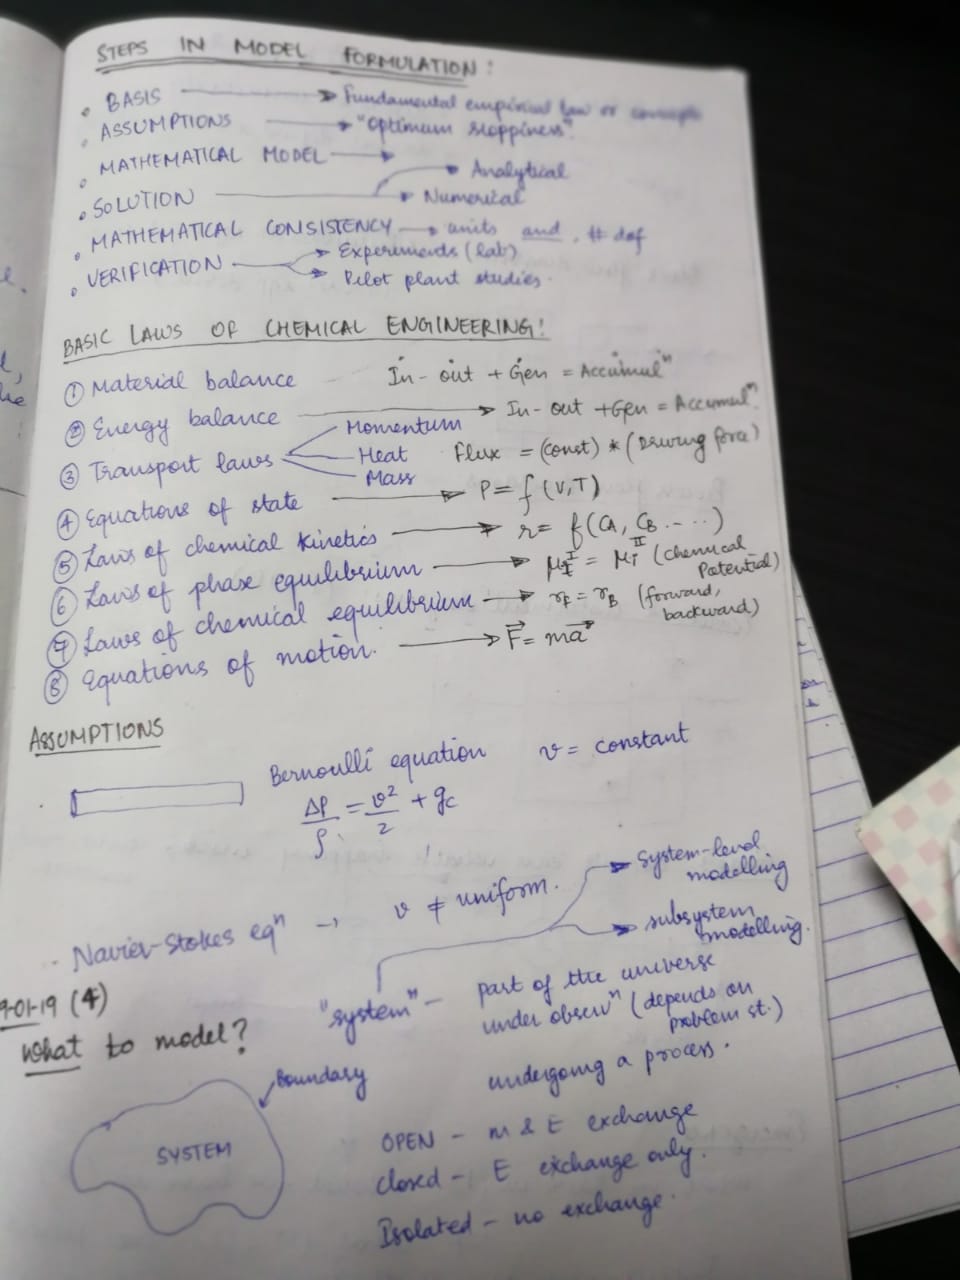 STEPS IN MODEL FORMULATION:
• BASIS → Fundamental empirical law or concepts
• ASSUMPTIONS → "Optimum sloppiness".
• MATHEMATICAL MODEL →
→ Analytical
• SOLUTION → Numerical
• MATHEMATICAL CONSISTENCY → units and, # dof
• VERIFICATION → Experiments (lab)
→ Pilot plant studies.
BASIC LAWS OF CHEMICAL ENGINEERING!
① Material balance In - out + Gen = Accumulⁿ
② Energy balance → In - out + Gen = Accumulⁿ
③ Transport laws Momentum
Heat Flux = (const) * (Driving force)
Mass
④ Equations of state → P = f (V,T)
⑤ Laws of chemical kinetics → r = f(CA, CB ....)
⑥ Laws of phase equilibrium → μiᴵ = μiᴵᴵ (chemical Potential)
⑦ Laws of chemical equilibrium → rF = rB (forward, backward)
⑧ Equations of motion. → F⃗ = ma⃗
ASSUMPTIONS
Bernoulli equation v = constant
ΔP/ρ = v²/2 + gc
→ system-level modelling
Navier-Stokes eqⁿ → v ≠ uniform. → subsystem modelling.
9-01-19 (4)
"system" - part of the universe
under observⁿ (depends on problem st.)
What to model?
undergoing a process.
Boundary
SYSTEM
OPEN - m & E exchange
closed - E exchange only.
Isolated - no exchange.